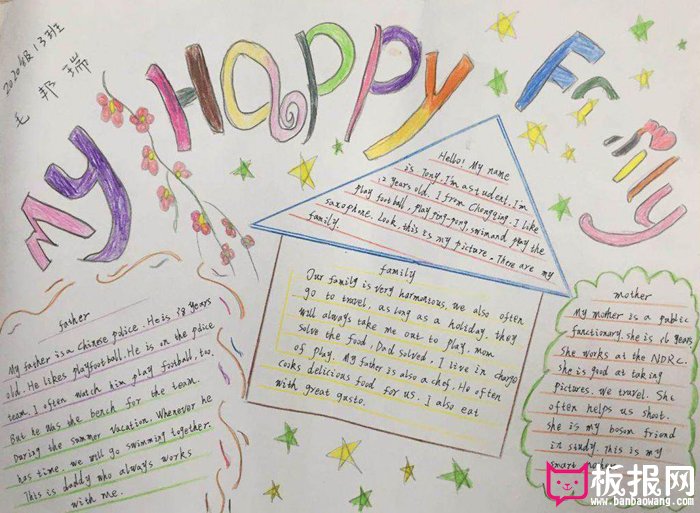 2020级13班
毛邦瑞
My Happy Family
Hello! My name
is Tony. I'm a student. I'm
12 years old. I from Chongqing. I like
play football, play ping-pong, swim and play the
saxophone. Look, this is my picture. There are my
family.
father
My father is a Chinese police. He is 38 years
old. He likes playfootball. He is on the police
team. I often watch him play football, too.
But he was the bench for the team.
During the summer vacation. Whenever he
has time. we will go swimming together.
This is daddy who always works
with me.
family
Our family is very harmonious. we also often
go to travel, as long as a holiday. they
will always take me out to play. mom
solve the food, Dad solved, I live in charge
of play. My father is also a chef. He often
cooks delicious food for us. I also eat
with great gusto.
mother
My mother is a public
functionary. she is years
She works at the NDRC.
She is good at taking
pictures. we travel. She
often helps us shoot.
she is my bosom friend
in study. This is my
smart
板报网
www.banbaowang.com